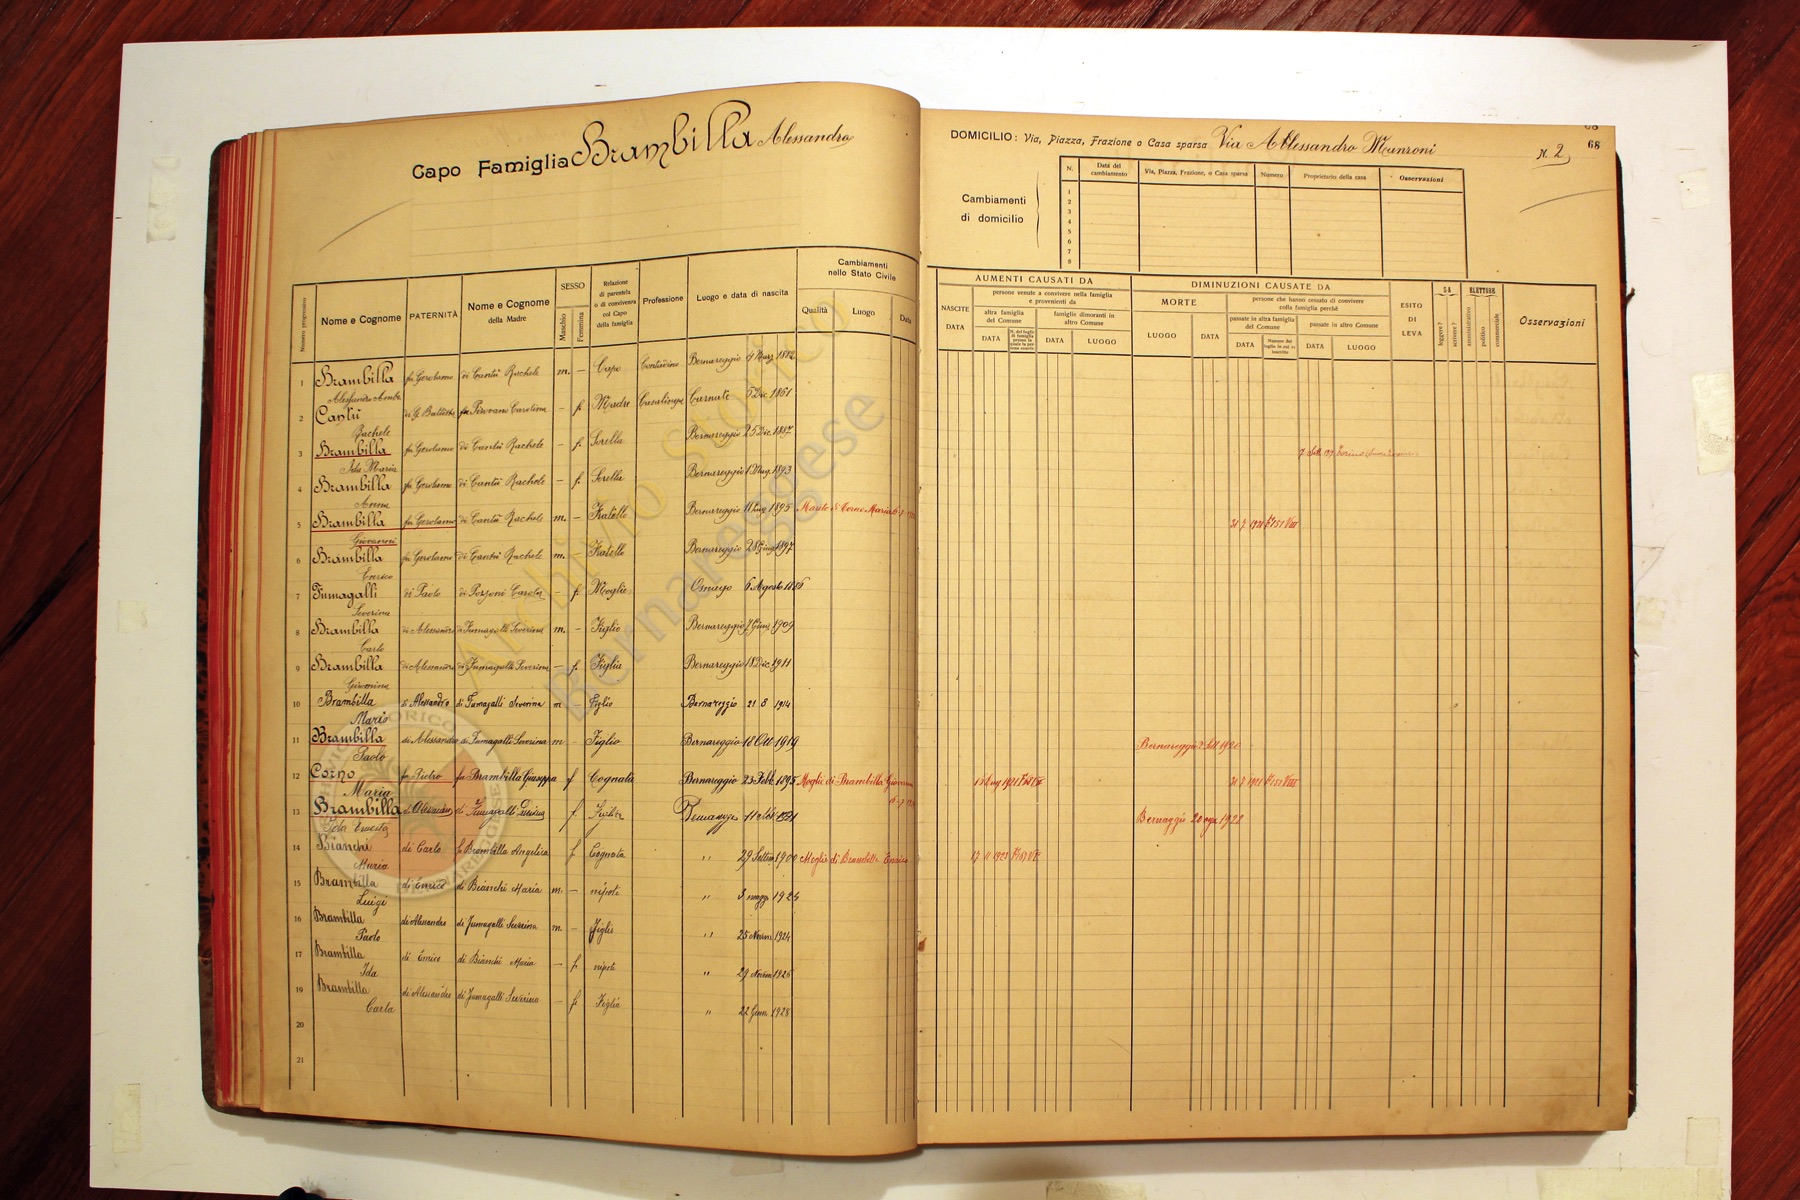 Capo Famiglia Brambilla Alessandro
Numero progressivo
Nome e Cognome
PATERNITÀ
Nome e Cognome
della Madre
SESSO
Maschio
Femmina
Relazione
di parentela
o di convivenza
col Capo
della famiglia
Professione
Luogo e data di nascita
Cambiamenti
nello Stato Civile
Qualità
Luogo
Data
1 Brambilla fu Gerolamo di Cantù Rachele m. – Capo Contadino Bernareggio 4 Marz 1882
Alessandro
2 Cantù di G. Battista Carolina – f. Madre Casalinga Carnate 5 Dic 1861
Rachele
3 Brambilla fu Gerolamo di Cantù Rachele – f. Sorella Bernareggio 25 Dic. 1887
Ida Maria
4 Brambilla fu Gerolamo di Cantù Rachele – f. Sorella Bernareggio 1893
5 Brambilla fu Gerolamo di Cantù Rachele m. – Fratello Bernareggio 11 Lug 1895 Marito di Corno Maria
Giovanni
6 Brambilla fu Gerolamo di Cantù Rachele m. – Fratello Bernareggio 28 Giug 1897
Enrico
7 Fumagalli di Paolo di Pozzoni Carola – f. Moglie Osnago 6 Agosto 1886
Severina
8 Brambilla di Alessandro di Fumagalli Severina m. – Figlio Bernareggio 7 1909
Carlo
9 Brambilla di Alessandro di Fumagalli Severina – f. Figlia Bernareggio 18 Dic 1911
10 Brambilla di Alessandro di Fumagalli Severina m – Figlio Bernareggio 21 8 1914
Mario
11 Brambilla di Alessandro di Fumagalli Severina m – Figlio Bernareggio 18 Ott 1919
Paolo
12 Corno fu Pietro fu Brambilla Giuseppa f Cognata Bernareggio 23 Febb 1895 Moglie di Brambilla Giovanni
Maria
13 Brambilla di Alessandro di Fumagalli f. Figlia Bernareggio 11 1921
Ida Ernesta
14 Bianchi di Carlo Brambilla Angelica f Cognata " 29 Settem 1900 Moglie di Brambilla Enrico
Maria
15 Brambilla di Enrico di Bianchi Maria m. – nipote " 3 magg
Luigi
16 Brambilla di Alessandro di Fumagalli Severina m. – Figlio " 25 Novem 1924
Paolo
17 Brambilla di Enrico di Bianchi Maria – f. nipote " 29 Novem
Ida
19 Brambilla di Alessandro di Fumagalli Severina – f. Figlia " 22 Genn 1928
Carla
20
21
DOMICILIO: Via, Piazza, Frazione o Casa sparsa Via Alessandro Manzoni N. 2
68
Cambiamenti
di domicilio
N.
Data del
cambiamento
Via, Piazza, Frazione, o Casa sparsa
Numero
Proprietario della casa
Osservazioni
1
2
3
4
5
6
7
8
AUMENTI CAUSATI DA
NASCITE
DATA
persone venute a convivere nella famiglia
e provenienti da
altra famiglia
del Comune
DATA
famiglie dimoranti in
altro Comune
DATA
LUOGO
DIMINUZIONI CAUSATE DA
MORTE
LUOGO
DATA
persone che hanno cessato di convivere
colla famiglia perchè
passate in altra famiglia
del Comune
DATA
passate in altro Comune
DATA
LUOGO
ESITO
DI
LEVA
SA
leggere?
scrivere?
ELETTORE
amministrativo
politico
commerciale
Osservazioni
Bernareggio 2 Sett 1920
Bernareggio 20 1922
Archivio storico
Bernareggese